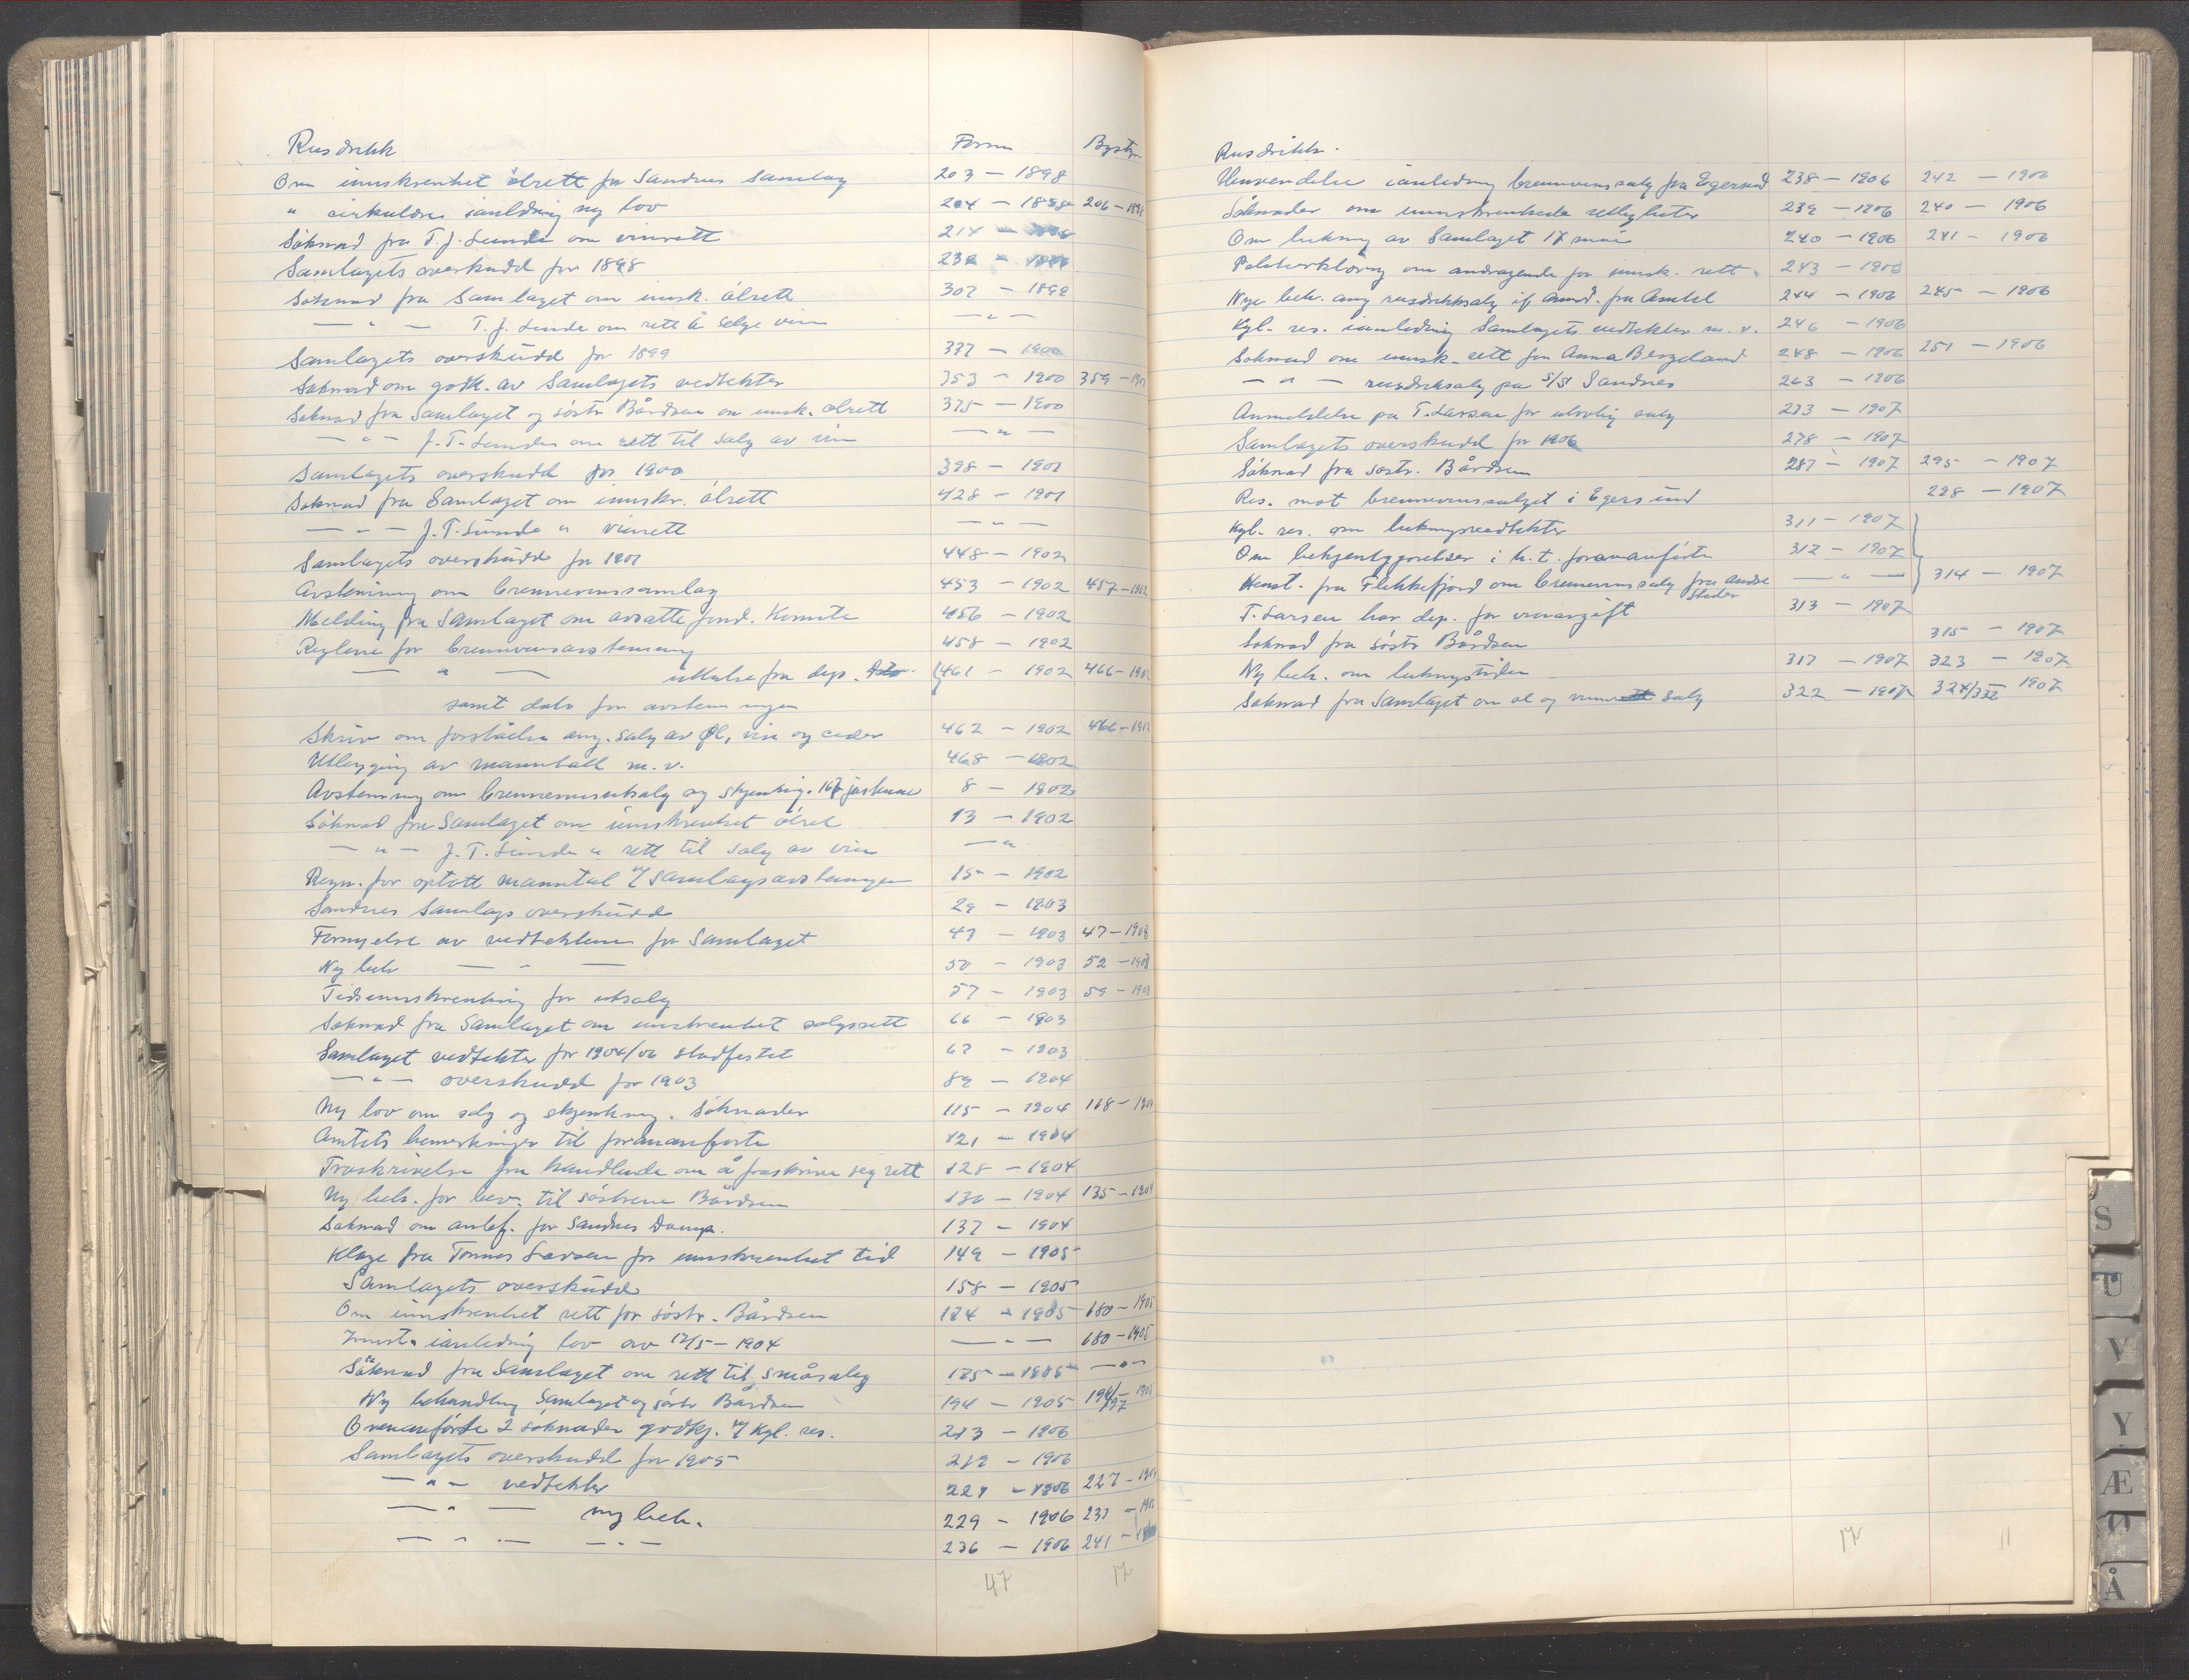 Rusdrikk Form Bystyr
Om innskrenket ölrett for Sandnes Samlag 203 — 1898
" cirkulære ianledning ny lov 204 — 1898 206 — 1898
Söknad fra T. J. Lunde om vinrett 214 — 1898
Samlagets overskudd for 1898 232 — 1899
Söknad fra Samlaget om innsk. ölrett 307 — 1899
— " — T. J. Lunde om rett å selge vin — " —
Samlagets overskudd for 1899 337 — 1900
Söknad om godk. av Samlagets vedtekter 353 — 1900 359 — 1900
Söknad fra Samlaget og söstr Bårdsen om innsk. ölrett 375 — 1900
— " — J. T. Lunde om rett til salg av vin — " —
Samlagets overskudd for 1900 398 — 1901
Söknad fra Samlaget om innskr. ölrett 428 — 1901
— " — J. T. Lunde " vinrett — " —
Samlagets overskudd for 1901 448 — 1902
Avstemning om brennevinssamlag 453 — 1902 457 — 1902
Melding fra Samlaget om avsatte fond. Komite 456 — 1902
Reglene for brennevinsavstemning 458 — 1902
— " — uttalelse fra dep. 461 — 1902 466 — 1902
samt dato for avstemningen
Skriv om forståelse ang. salg av Öl, vin og cider 462 — 1902 466 — 1902
Utlegging av manntall m. v. 468 — 1902
Avstemning om brennevinsutsalg og skjenking. 8 — 1902
Söknad fra Samlaget om innskrenket ölret 13 — 1902
— " — J. T. Lunde " rett til salg av vin — "
Regn. for optatt manntal v/ Samlagsavstemningen 15 — 1902
Sandnes Samlags overskudd 29 — 1903
Fornyelse av vedtektene for Samlaget 43 — 1903 47 — 1903
Ny beh — " — 50 — 1903 52 — 1903
Tidsinnskrenking for utsalg 57 — 1903 59 — 1903
Söknad fra Samlaget om innskrenket salgsrett 66 — 1903
Samlaget vedtekter for 1904/06 stadfestet 67 — 1903
— " — overskudd for 1903 89 — 1904
Ny lov om salg og skjenkning. Söknader 115 — 1904 118 — 1904
Amtets bemerkninger til forananförte 121 — 1904
Fraskrivelse fra handlende om å fraskrive seg rett 128 — 1904
Ny beh. for bev. til söstrene Bårdsen 130 — 1904 135 — 1904
Söknad om anbef. for Sandnes Damp. 137 — 1904
Klage fra Tönnes Larsen for innskrenket tid 149 — 1905
Samlagets overskudd 158 — 1905
Om innskrenket rett for söstr. Bårdsen 174 — 1905 180 — 1905
Innst. ianledning lov av 17/5 — 1904 — " — 180 — 1905
Söknad fra Samlaget om rett til småsalg 175 — 1905 — " —
Ny behandling Samlaget og söstr Bårdsen 194 — 1905 196/197 — 1905
Ovenanförte 2 söknader godkj. v/ Kgl. res. 213 — 1906
Samlagets overskudd for 1905 219 — 1906
— " — vedtekter 224 — 1906 227 — 1906
— " — ny beh. 229 — 1906 233 — 1906
— " — — " — 236 — 1906 241 — 1906
47 17
Rusdrikk.
Henvendelse ianledning brennevinssalg fra Egersund 238 — 1906 242 — 1906
Söknader om innskrenkede rettigheter 239 — 1906 240 — 1906
Om lukning av Samlaget 17 mai 240 — 1906 241 — 1906
Politierklæring om andragende for innsk. rett. 243 — 1906
Nye beh. ang rusdrikksalg if. anm. fra Amtet 244 — 1906 245 — 1906
Kgl. res. ianledning Samlagets vedtekter m. v. 246 — 1906
Söknad om innsk. rett fra Anna Bergeland 248 — 1906 251 — 1906
— " — rusdriksalg på S/S Sandnes 263 — 1906
Anmeldelse på T. Larsen for ulovlig salg 273 — 1907
Samlagets overskudd for 1906 278 — 1907
Söknad fra söstr. Bårdsen 287 — 1907 295 — 1907
Res. mot brennevinssalget i Egersund 298 — 1907
Kgl. res. om lukningsvedtekter 311 — 1907
Om bekjentgjörelser i h. t. forananförte 312 — 1907
Henst. fra Flekkefjord om brennevinssalg fra andre steder — " — 314 — 1907
T. Larsen har dep. for vinavgift 313 — 1907
Söknad fra söstr Bårdsen 315 — 1907
Ny beh. om lukningstiden 317 — 1907 323 — 1907
Söknad fra Samlaget om öl og vin salg 322 — 1907 324/332 1907
17 11
S
U
V
Y
Æ
Ö
Å